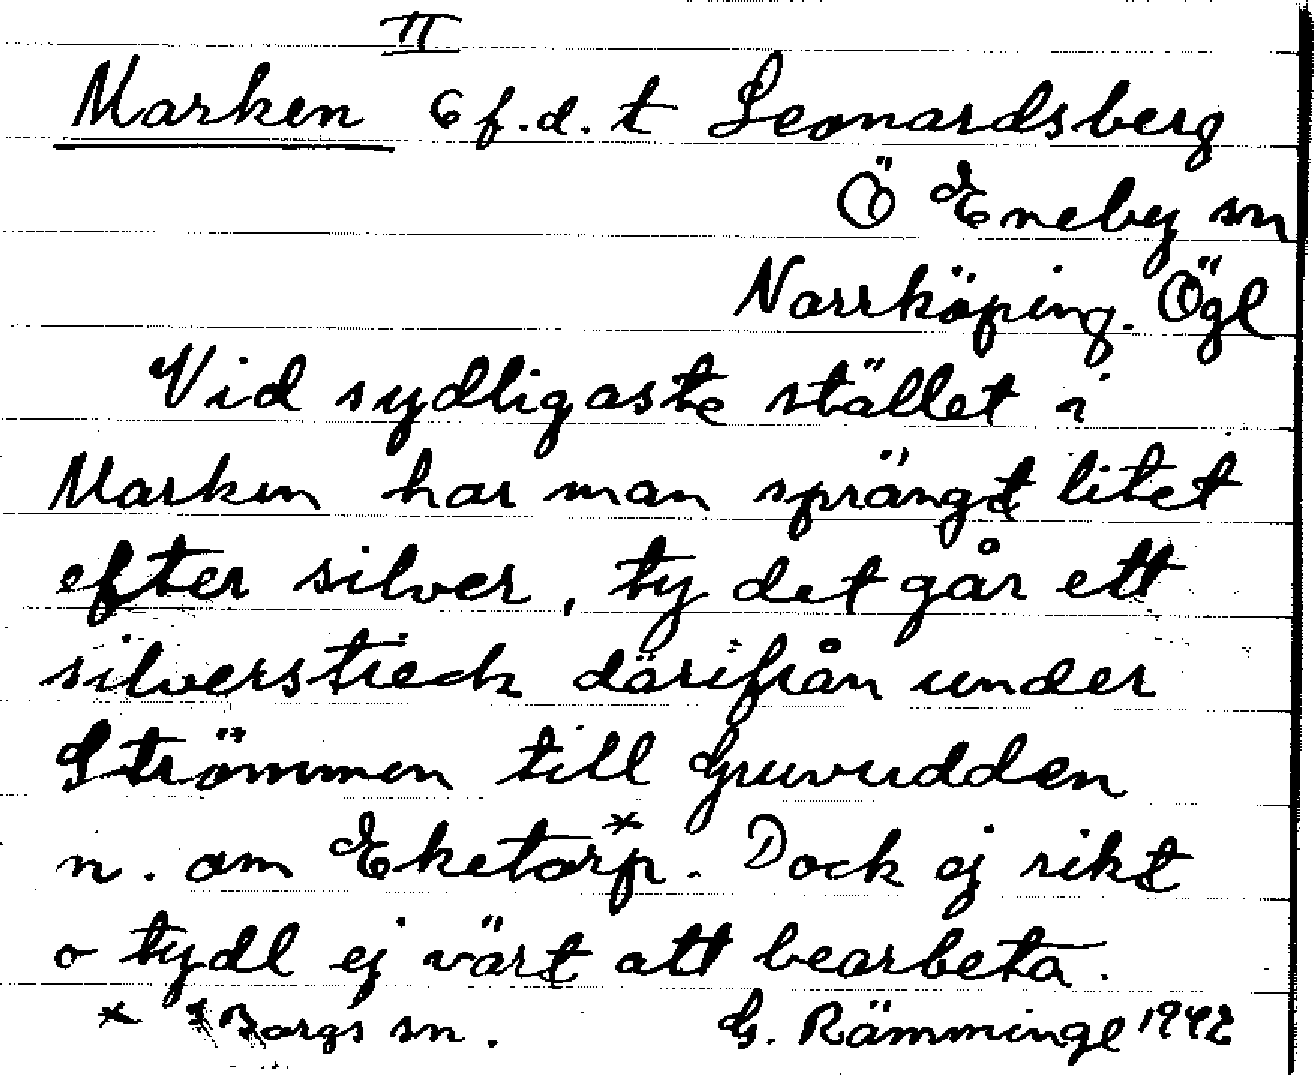 II
Marken 6 f.d. t Leonardsberg
Ö Eneby sn
Norrköping. Ögl
Vid sydligaste stället i
Marken har man sprängt litet
efter silver, ty det går ett
silverstreck därifrån under
Strömmen till Gruvudden
n. om Eketorp.* Dock ej rikt
o tydl ej värt att bearbeta.
* Borgs sn. G. Rämminge 1942